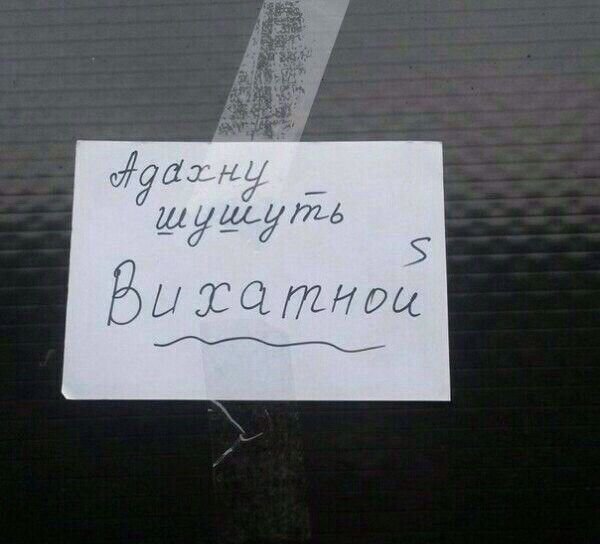 Адахну
шушуть
Вихатной